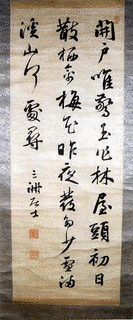 開戸唯驚玉作林屋頭初日
散栖禽梅花昨夜發多少雪満
渓山何處尋
三洲居士